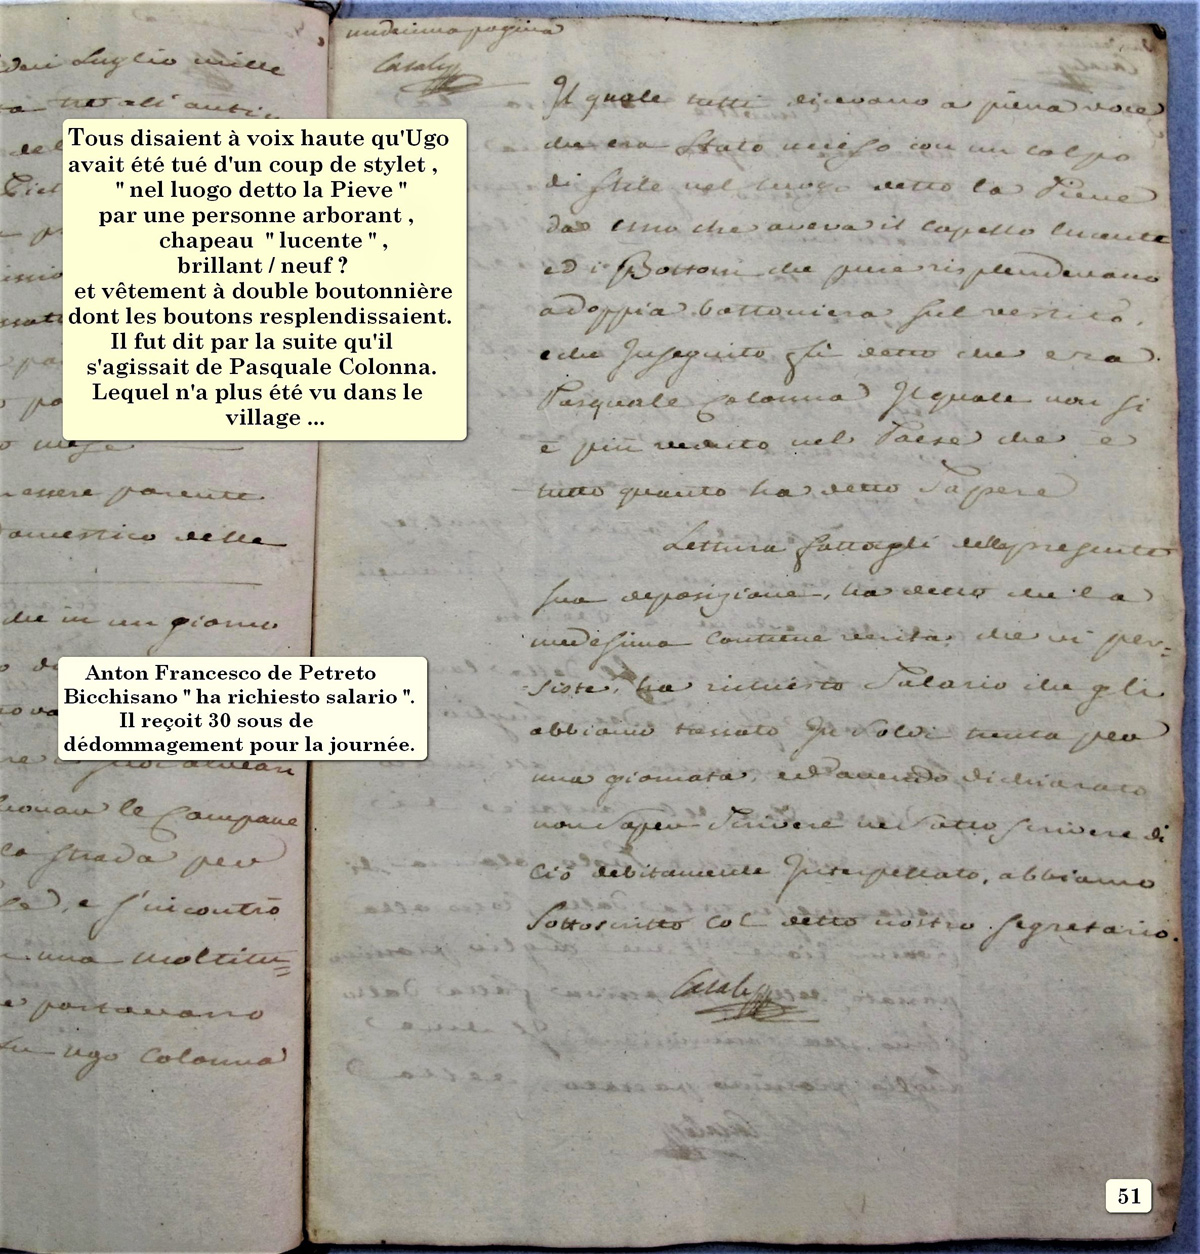 dieci Luglio mille
essere parente
domestico delle
che in un giorno
le Campane
la strada per
e s'incontrò
una moltitu=
e portavano
fu Ugo Colonna
undecima pagina
Casale
Il quale tutti dicevano a piena voce
che era stato ucciso con un colpo
di stile nel luogo detto la Pieve
da uno che aveva il capello lucente
ed i Bottoni che pure risplendevano
a doppia bottoniera sul vestito,
e che in seguito gli detto che era
Pasquale Colonna Il quale non si
è più veduto nel Paese che è
tutto quanto ha detto sapere
Lettura fattagli della presente
sua deposizione, ha detto che la
medesima contiene verità, che vi per=
siste, ha richiesto salario che gli
abbiamo tassato in soldi trenta per
una giornata, ed avendo dichiarato
non saper scrivere ne sottoscrivere di
ciò debitamente Interpellato, abbiamo
sottoscritto col detto nostro segretario.
Casale
Tous disaient à voix haute qu'Ugo
avait été tué d'un coup de stylet ,
" nel luogo detto la Pieve "
par une personne arborant ,
chapeau " lucente " ,
brillant / neuf ?
et vêtement à double boutonnière
dont les boutons resplendissaient.
Il fut dit par la suite qu'il
s'agissait de Pasquale Colonna.
Lequel n'a plus été vu dans le
village ...
Anton Francesco de Petreto
Bicchisano " ha richiesto salario ".
Il reçoit 30 sous de
dédommagement pour la journée.
51